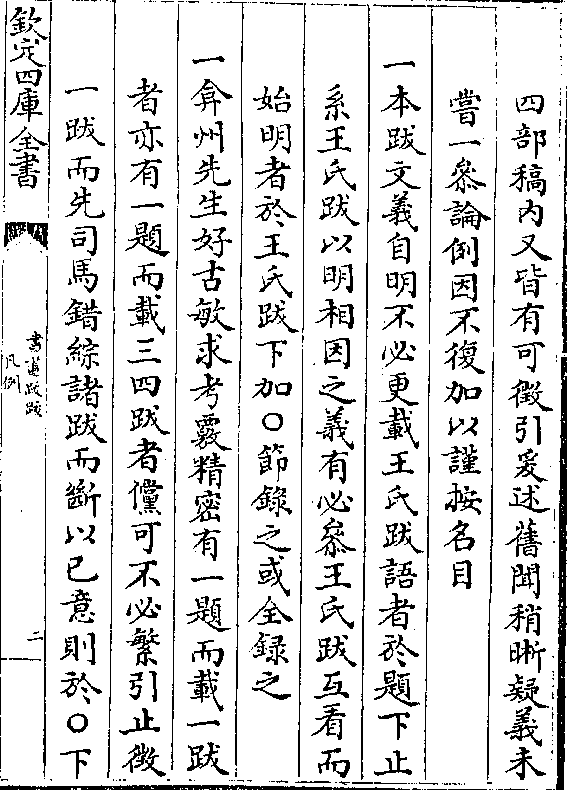 四部稿内又皆有可徴引爰述舊聞稍晰疑義未
嘗一叅論例因不復加以謹按名目
一本跋文義自明不必更載王氏跋語者於題下止
系王氏跋以明相因之義有必叅王氏跋互看而
始明者於王氏跋下加〇節録之或全録之
一弇州先生好古敏求考覈精密有一題而載一跋
者亦有一題而載三四跋者儻可不必繁引止徴
一跋而先司馬錯綜諸跋而斷以已意則於〇下
欽定四庫全書
書畫跋跋
凡例
二